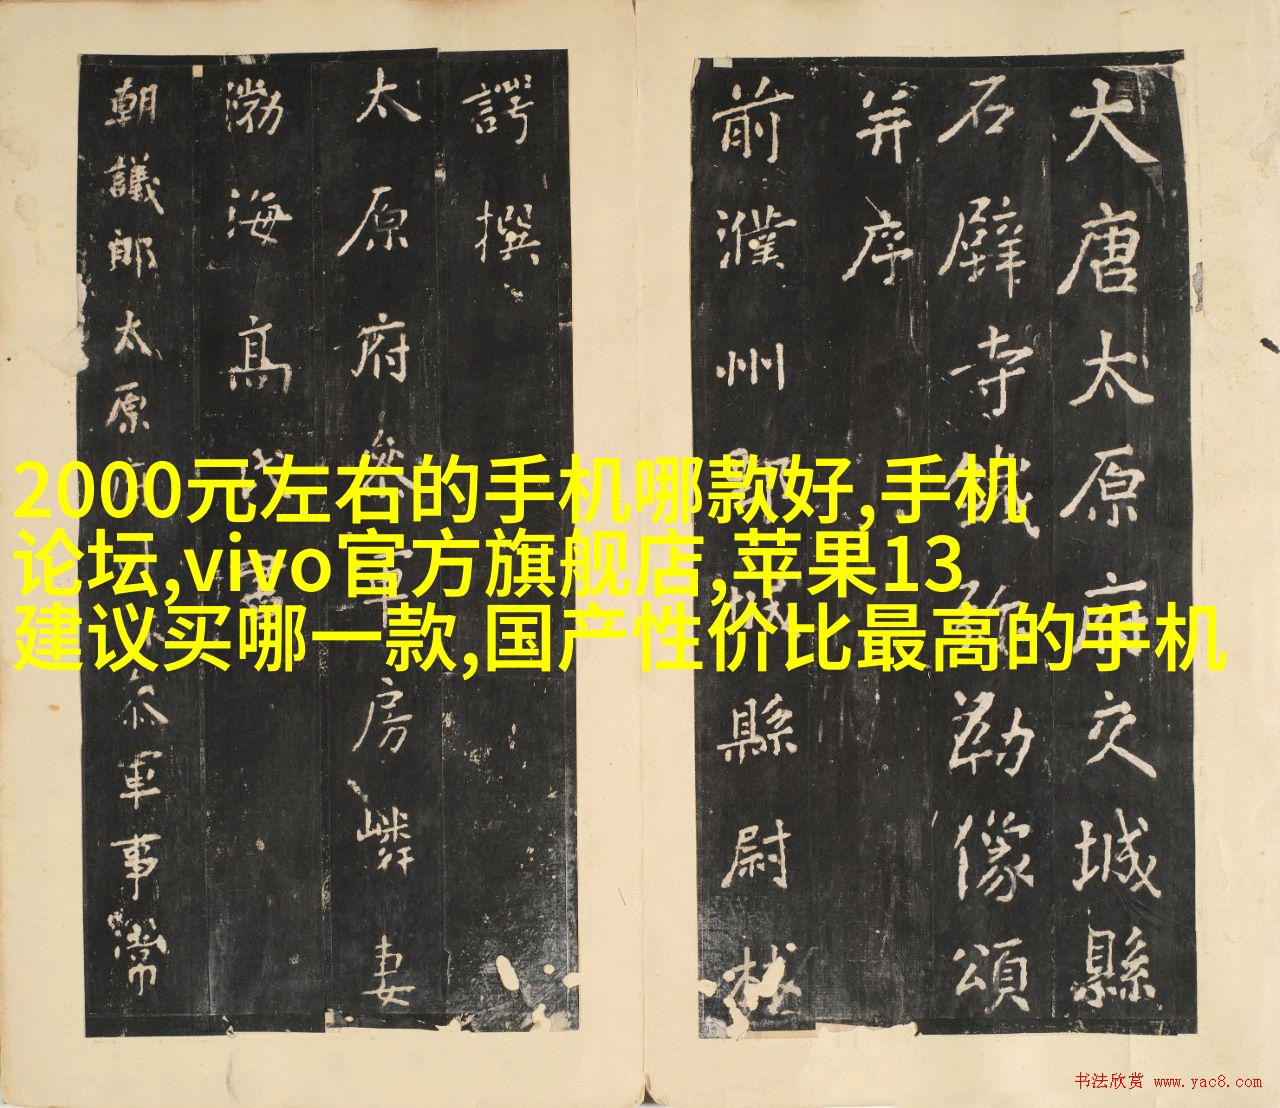 大唐太原府交城縣
石壁寺鐵弥勒像頌
并序
前濮州鄄城縣尉林
諤撰
太原府叅軍房嶙妻
渤海髙氏書
朝議郎太原府司录叅軍事常
2000元左右的手机哪款好,手机
论坛,vivo官方旗舰店,苹果13
建议买哪一款,国产性价比最高的手机
书法欣赏 www.yac8.com